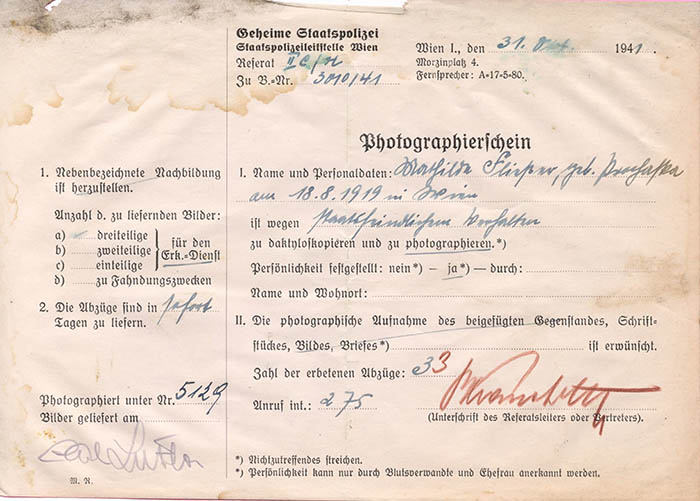 Geheime Staatspolizei
Staatspolizeileitstelle Wien
Referat II C/
Zu B.=Nr. 3010/41
Wien I., den 31. Okt. 1941.
Morzinplatz 4.
Fernsprecher: A=17-5-80.
Photographierschein
1. Nebenbezeichnete Nachbildung
ist herzustellen.
Anzahl d. zu liefernden Bilder:
a) dreiteilige
b) zweiteilige
c) einteilige
für den
Erk.=Dienst
d) zu Fahndungszwecken
2. Die Abzüge sind in sofort
Tagen zu liefern.
Photographiert unter Nr. 5129
Bilder geliefert am
M. R.
I. Name und Personaldaten: Mathilde Fließer, geb. Prochaska
am 18.8.1919 in Wien
ist wegen staatsfeindlichem Verhalten
zu daktyloskopieren und zu photographieren.*)
Persönlichkeit festgestellt: nein*) – ja*) – durch:
Name und Wohnort:
II. Die photographische Aufnahme des beigefügten Gegenstandes, Schrift=
stückes, Bildes, Briefes*) ist erwünscht.
Zahl der erbetenen Abzüge: 33
Anruf int.: 275
(Unterschrift des Referatsleiters oder Vertreters).
*) Nichtzutreffendes streichen.
*) Persönlichkeit kann nur durch Blutsverwandte und Ehefrau anerkannt werden.